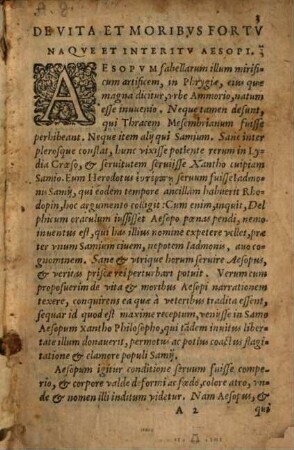 3
DE VITA ET MORIBVS FORTV
NAQVE ET INTERITV AESOPI.
AESOPVM fabellarum illum mirifi
cum artificem, in Phrygia, eius quæ
magna dicitur, vrbe Ammorio, natum
esse inuenio. Neque tamen desunt,
qui Thracem Mesembrianum fuisse
perhibeant. Neque item alij qui Samium. Sane inter
plerosque constat, hunc vixisse potiente rerum in Ly
dia Crœso, & seruitutem seruisse Xantho cuipiam
Samio. Eum Herodotus seruum fuisse Iadmo
nis Samij, qui eodem tempore ancillam habuerit Rho
dopin, hoc argumento colligit: Cum enim, inquit, Del
phicum oraculum iussisset Aesopo pœnas pendi, nemo
inuentus est, qui has illius nomine expetere vellet, præ
ter vnum Samium ciuem, nepotem Iadmonis, auo co
gnominem. Sane & vtrique horum seruire Aesopus,
& veritas priscæ rei perturbari potuit. Verum cum
proposuerim de vita & moribus Aesopi narrationem
texere, conquirens ea quæ à veteribus tradita essent,
sequar id quod est maxime receptum, venisse in Samo
Aesopum Xantho Philosopho, qui tãdem inuitus liber
tate illum donauerit, permotus ac potius coactus flagi
tatione & clamore populi Samij.
Aesopum igitur conditione seruum fuisse compe-
rio, & corpore valde deformi ac fœdo, colore atro, vn
de & nomen illi inditum videtur. Nam Aesopus, &
A 2 quo